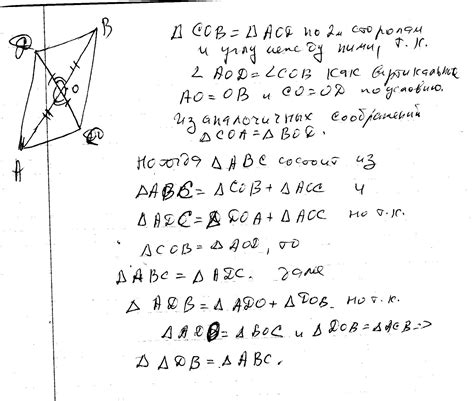 B
O
A
△ COB = △ AOD по 2м сторонам
и углу между ними, т.к.
∠ AOD = ∠ COB как вертикальные
AO = OB и CO = OD по условию.
Из аналогичных соображений
△ COA = △ BOD.
Но тогда △ ABC состоит из
△ABC = △ COB + △ AOC и
△ ADC = △ DOA + △ AOC но т.к.
△ COB = △ AOD, то
△ ABC = △ ADC. Далее
△ ADB = △ ADO + △ DOB но т.к.
△ ADO = △ BOC и △ DOB = △ACB =>
△ ADB = △ ABC.